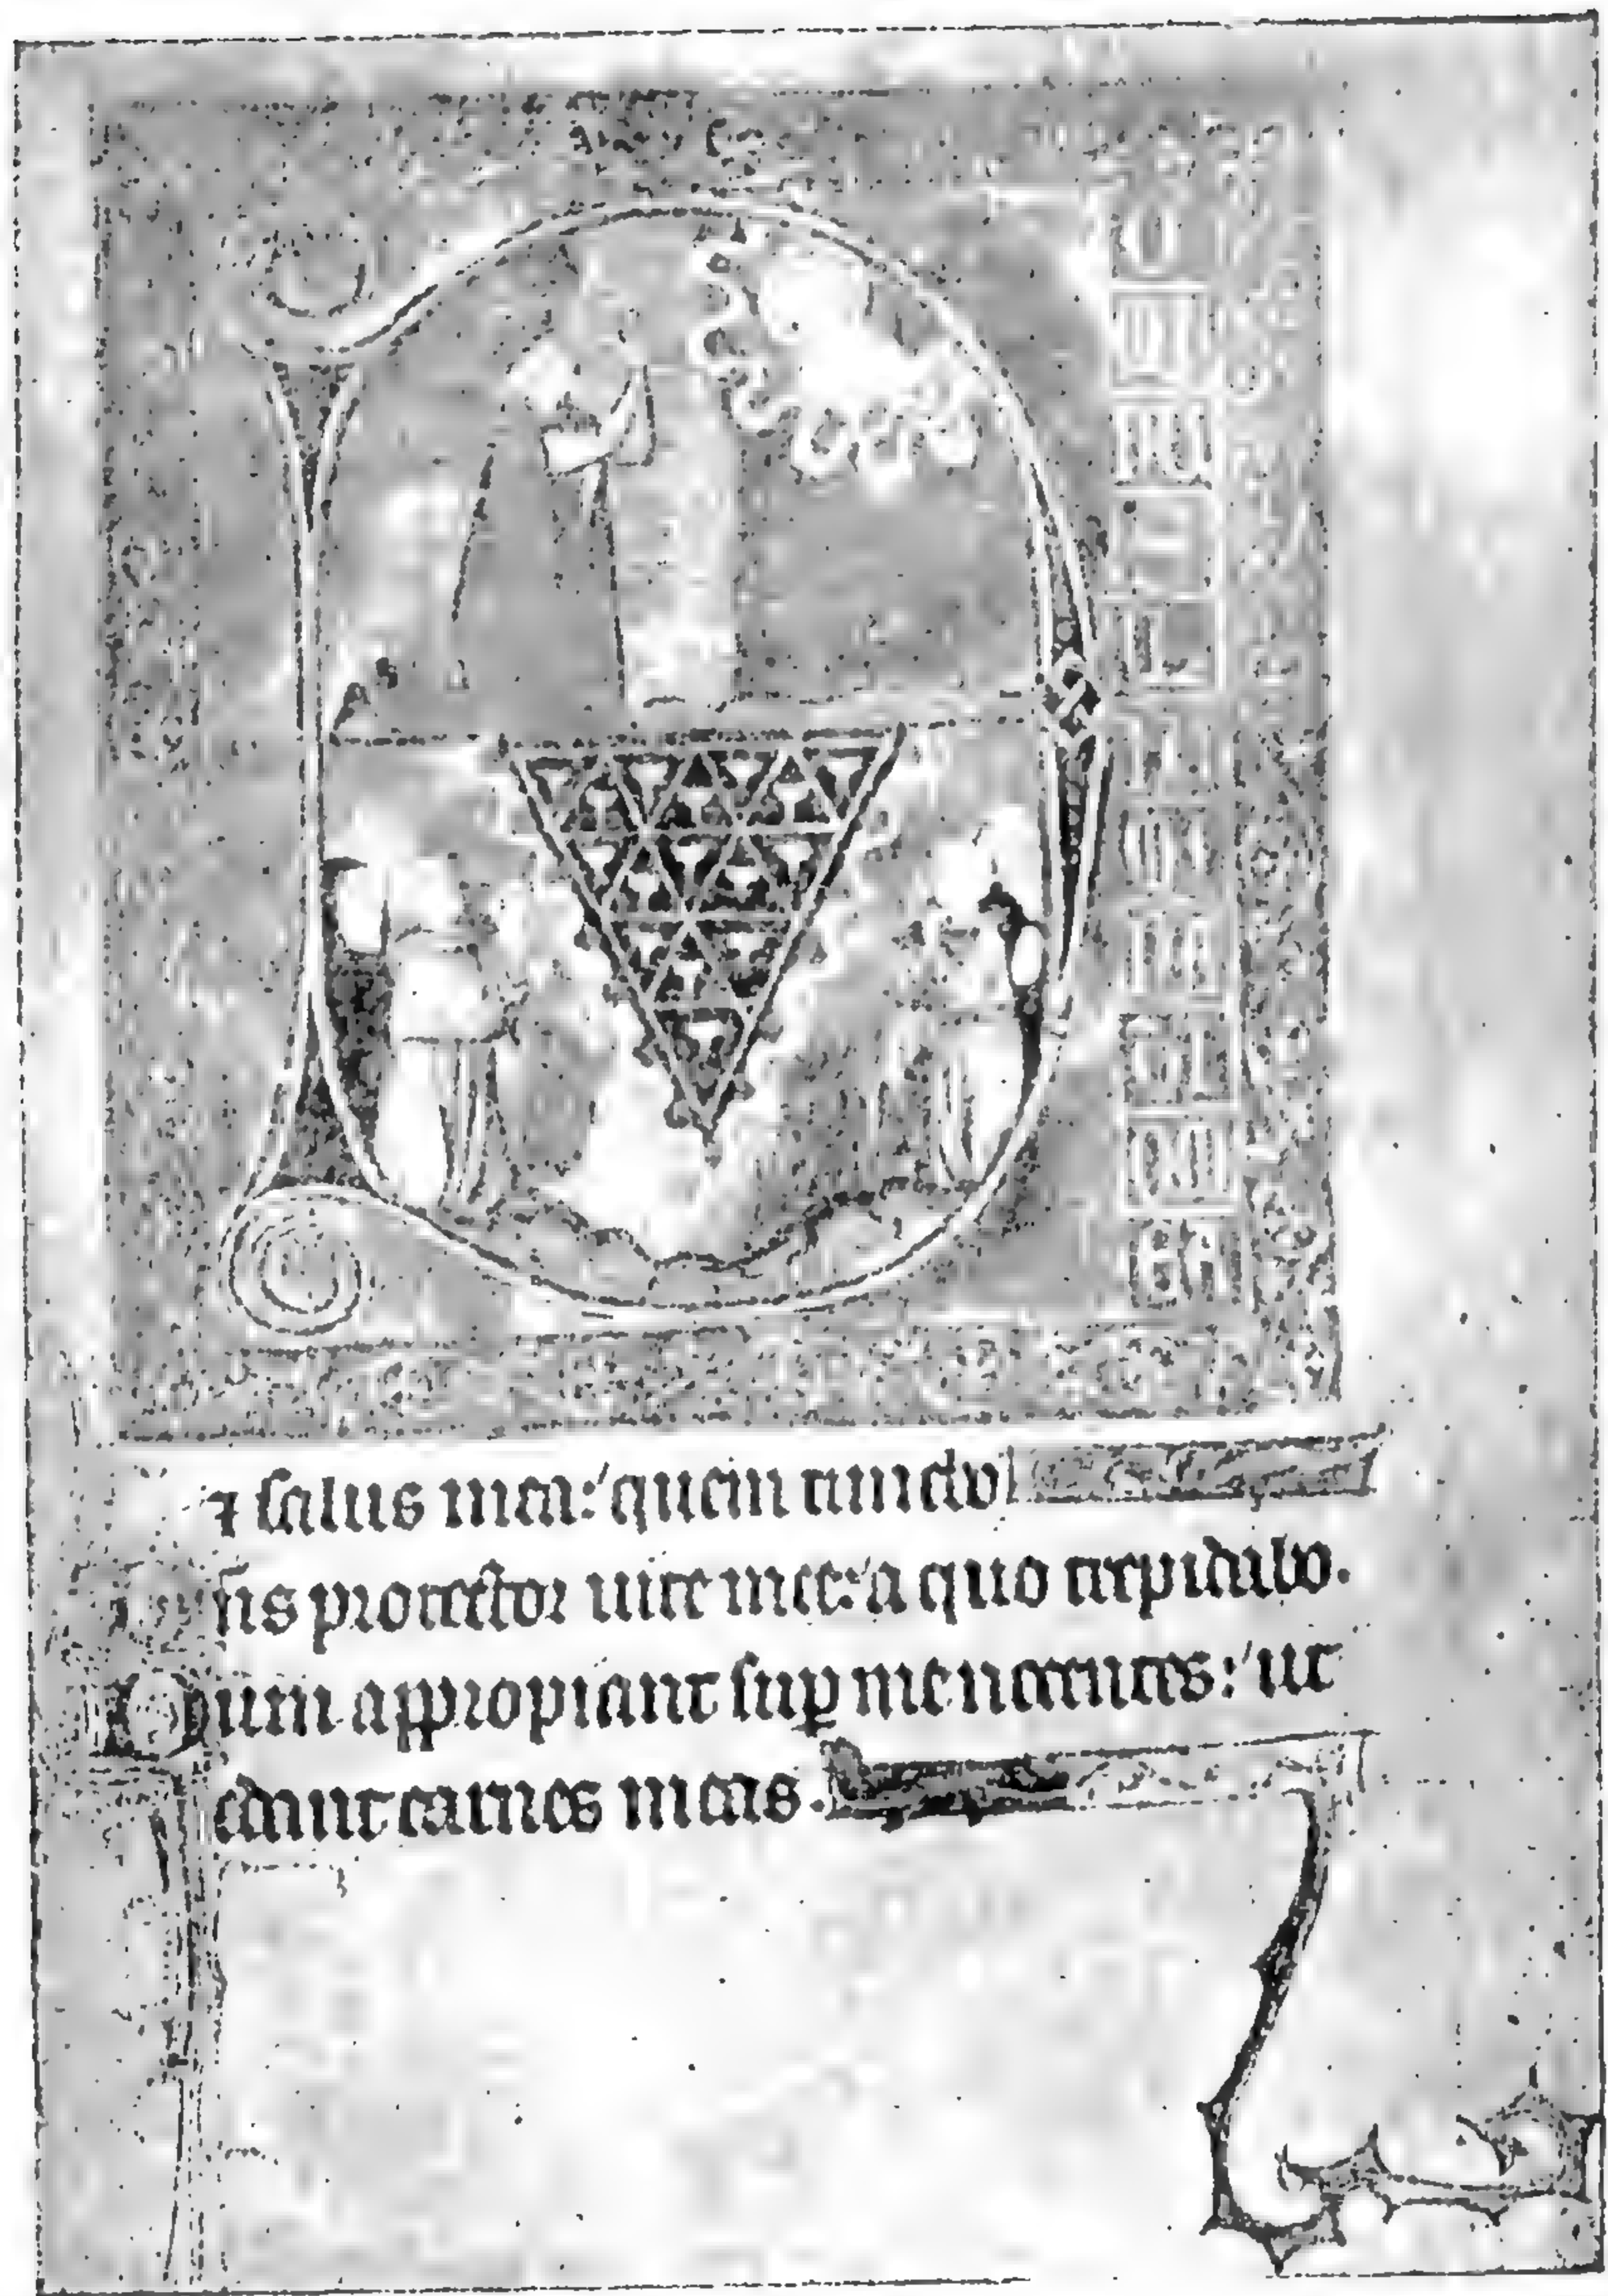 ⁊ salus mea: quem timebo
Dñs protector uite mee: a quo trepidabo.
Dum appropiant sup me nocentes: ut
edant carnes meas.